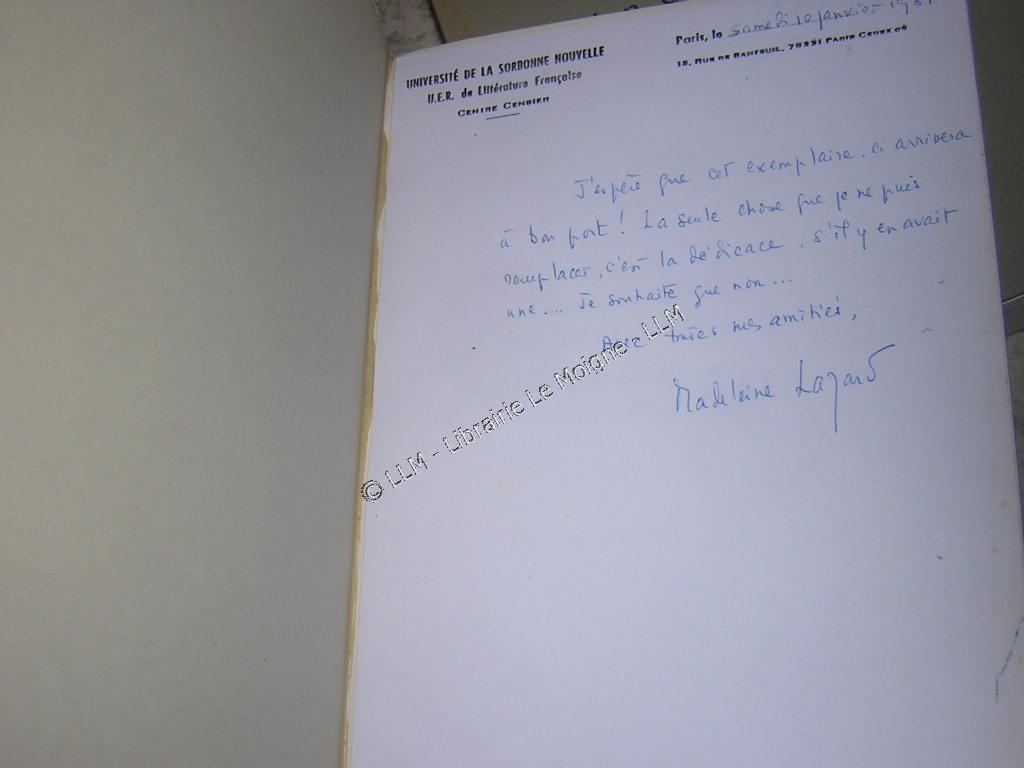 UNIVERSITÉ DE LA SORBONNE NOUVELLE
U.E.R. de Littérature Française
CENTRE CENSIER
Paris, le samedi 10 janvier 1981
13, RUE DE SANTEUIL, 75231 PARIS CEDEX 05
J'espère que cet exemplaire-ci arrivera
à bon port ! La seule chose que je ne puis
remplacer, c'est la dédicace, s'il y en avait
une.... Je souhaite que non...
Avec toutes mes amitiés,
Madeleine Lazard
© LLM - Librairie Le Moigne - LLM